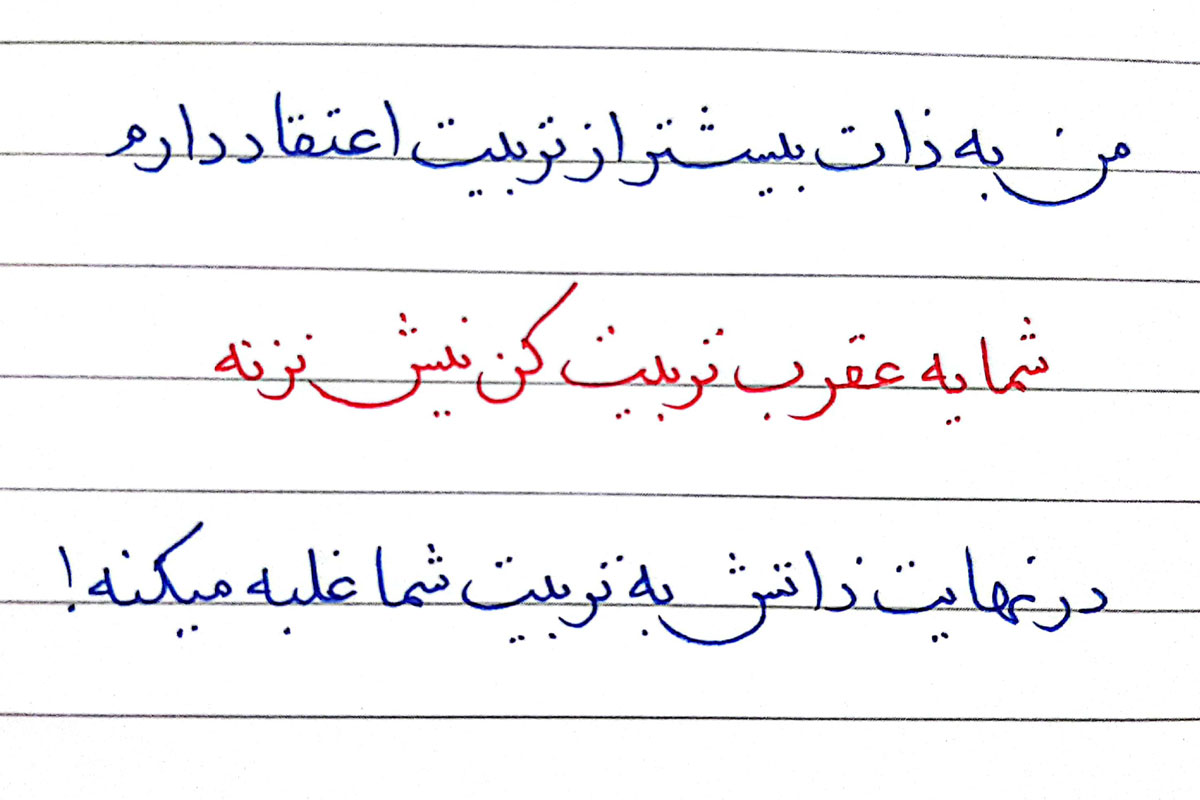 من به ذات بیشتر از تربیت اعتقاد دارم
شما یه عقرب تربیت کن نیش نزنه
در نهایت ذاتش به تربیت شما غلبه میکنه!